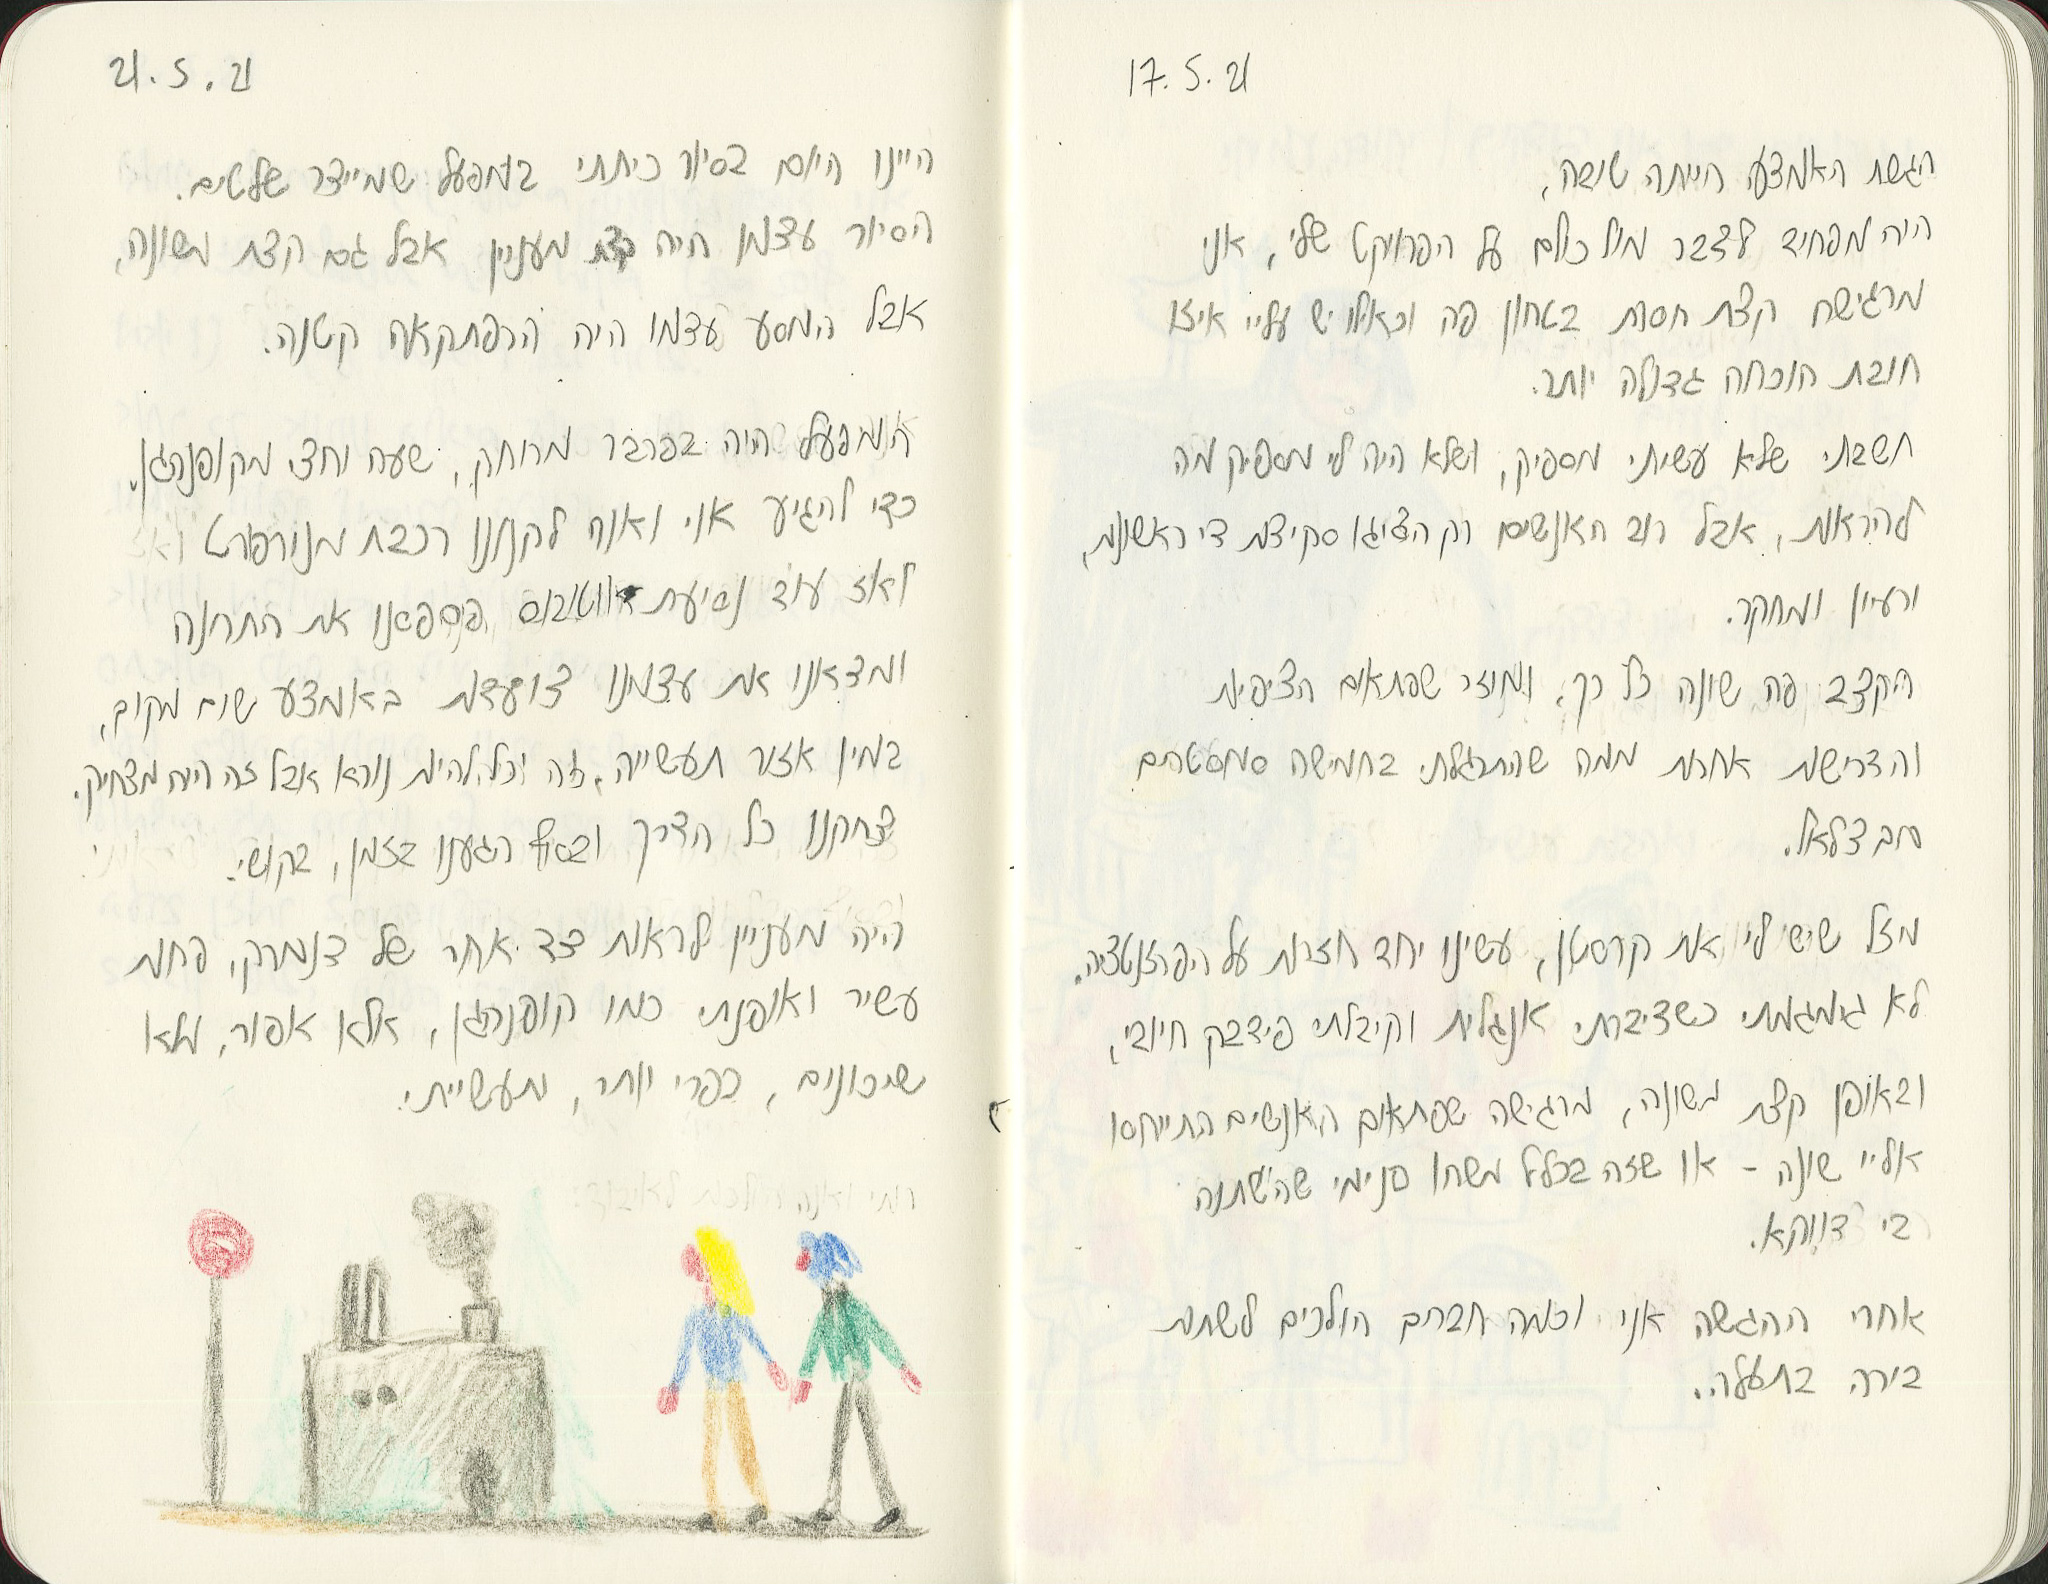 17.5.21
הגשת האמצע הייתה טובה,
היה מפחיד לדבר מול כולם על הפרויקט שלי, אני
מרגישה קצת חסות בטחון פה וכאילו יש עליי איזו
חובת הוכחה גדולה יותר.
חשבתי שלא עשיתי מספיק, ושלא היה לי מספיק מה
להראות, אבל רוב האנשים רק הציגו סקיצות די ראשונות,
ורעיון ומחקר.
הקצב פה שונה כל כך, ומוזר שפתאום הציפיות
והדרישות אחרות ממה שהתרגלתי בחמישה סמסטרים
בצלאל.
מזל שיש לי את קרסטן, עשינו יחד חזרות על הפרזנטציה.
לא גימגמתי כשדיברתי אנגלית וקיבלתי פידבק חיובי,
ובאופן קצת משונה, מרגישה שפתאום האנשים התייחסו
אליי שונה - או שזה בכלל משהו פנימי שהשתנה
בי דווקא.
אחרי ההגשה אני וכמה חברים הולכים לשתות
בירה בתעלה.
21.5.21
היינו היום בסיור כיתתי במפעל שמייצר שלטים.
הסיור עצמו היה מעניין אבל גם קצת משונה,
אבל המסע עצמו היה הרפתקאה קטנה.
המפעל היה בפרבר מרוחק, שעה וחצי מקופנהגן.
כדי להגיע אני ואנה לקחנו רכבת מנורפורט
ואז עוד נסיעת אווטובוס פיספסנו את התחנה
ומצאנו את עצמנו צועדות באמצע שום מקום,
במין אזור תעשייה, זה יכל להיות נורא אבל זה היה מצחיק.
צחקנו כל הדרך ובסוף הגענו בזמן, בקושי.
היה מעניין לראות צד אחר של דנמרק, פחות
עשיר ואופנתי כמו קופנהגן, אלא אפור, מלא
שיכונים, כפרי יותר, תעשייתי.